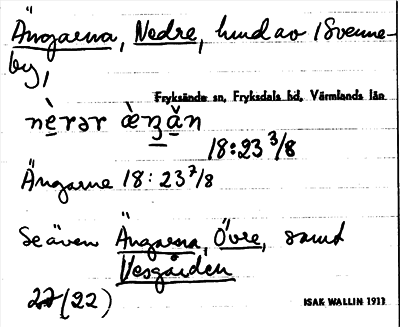 Ängarna, Nedre, hmd av /Svenne-
by,
Fryksände sn, Fryksdals hd, Värmlands län
18:23 3/8
Ängarne 18:23 7/8
Se även Ängarna, Övre, samt
Vesgården
27 (22)
ISAK WALLIN 1911